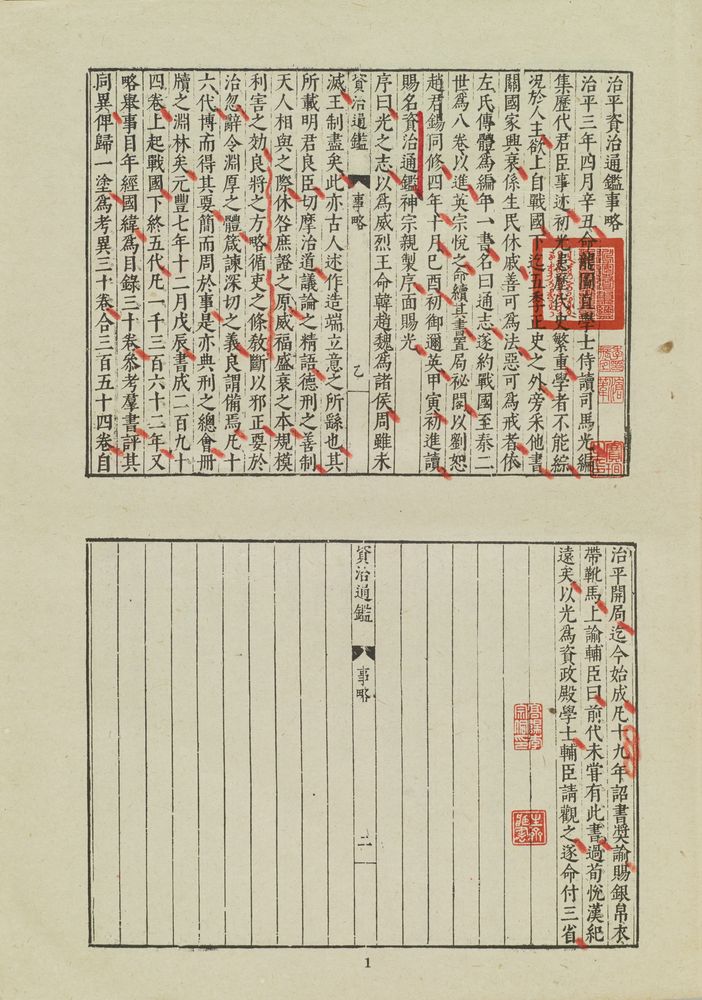 治平資治通鑑事略
治平三年四月辛丑命龍圖直學士侍讀司馬光編
集歷代君臣事迹初光患歷代史繁重學者不能綜
況於人主欲上自戰國下迄五季正史之外旁采他書
關國家興衰係生民休戚善可爲法惡可爲戒者依
左氏傳體爲編年一書名曰通志遂約戰國至秦二
世爲八卷以進英宗悅之命續其書置局祕閣以劉恕
趙君錫同修四年十月己酉初御邇英甲寅初進讀
賜名資治通鑑神宗親製序面賜光
序曰光之志以爲威烈王命韓趙魏爲諸侯周雖未
資治通鑑 事略 乙
滅王制盡矣此亦古人述作造端立意之所繇也其
所載明君良臣切摩治道議論之精語德刑之善制
天人相與之際休咎庶證之原威福盛衰之本規模
利害之効良將之方略循吏之條教斷以邪正要於
治忽辭令淵厚之體箴諫深切之義良謂備焉凡十
六代博而得其要簡而周於事是亦典刑之總會冊
牘之淵林矣元豐七年十二月戊辰書成二百九十
四卷上起戰國下終五代凡一千三百六十二年又
略舉事目年經國緯爲目錄三十卷參考羣書評其
同異俾歸一塗爲考異三十卷合三百五十四卷自
治平開局迄今始成凡十九年詔書奬諭賜銀帛衣
帶靴馬上諭輔臣曰前代未甞有此書過荀悅漢紀
遠矣以光爲資政殿學士輔臣請觀之遂命付三省
資治通鑑 事略 二
1